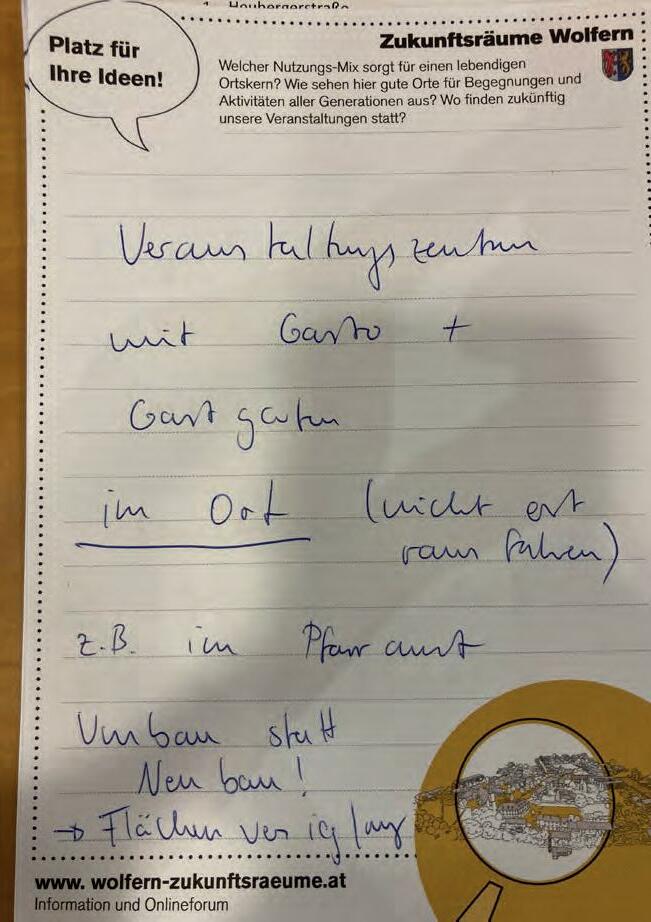 Platz für
Ihre Ideen!
Zukunftsräume Wolfern
Welcher Nutzungs-Mix sorgt für einen lebendigen
Ortskern? Wie sehen hier gute Orte für Begegnungen und
Aktivitäten aller Generationen aus? Wo finden zukünftig
unsere Veranstaltungen statt?
Veranstaltungszentrum
mit Gastro +
Gastgarten
im Ort (nicht erst
raus fahren)
z.B. im Pfarramt
Umbau statt
Neubau!
→ Flächen
www. wolfern-zukunftsraeume.at
Information und Onlineforum